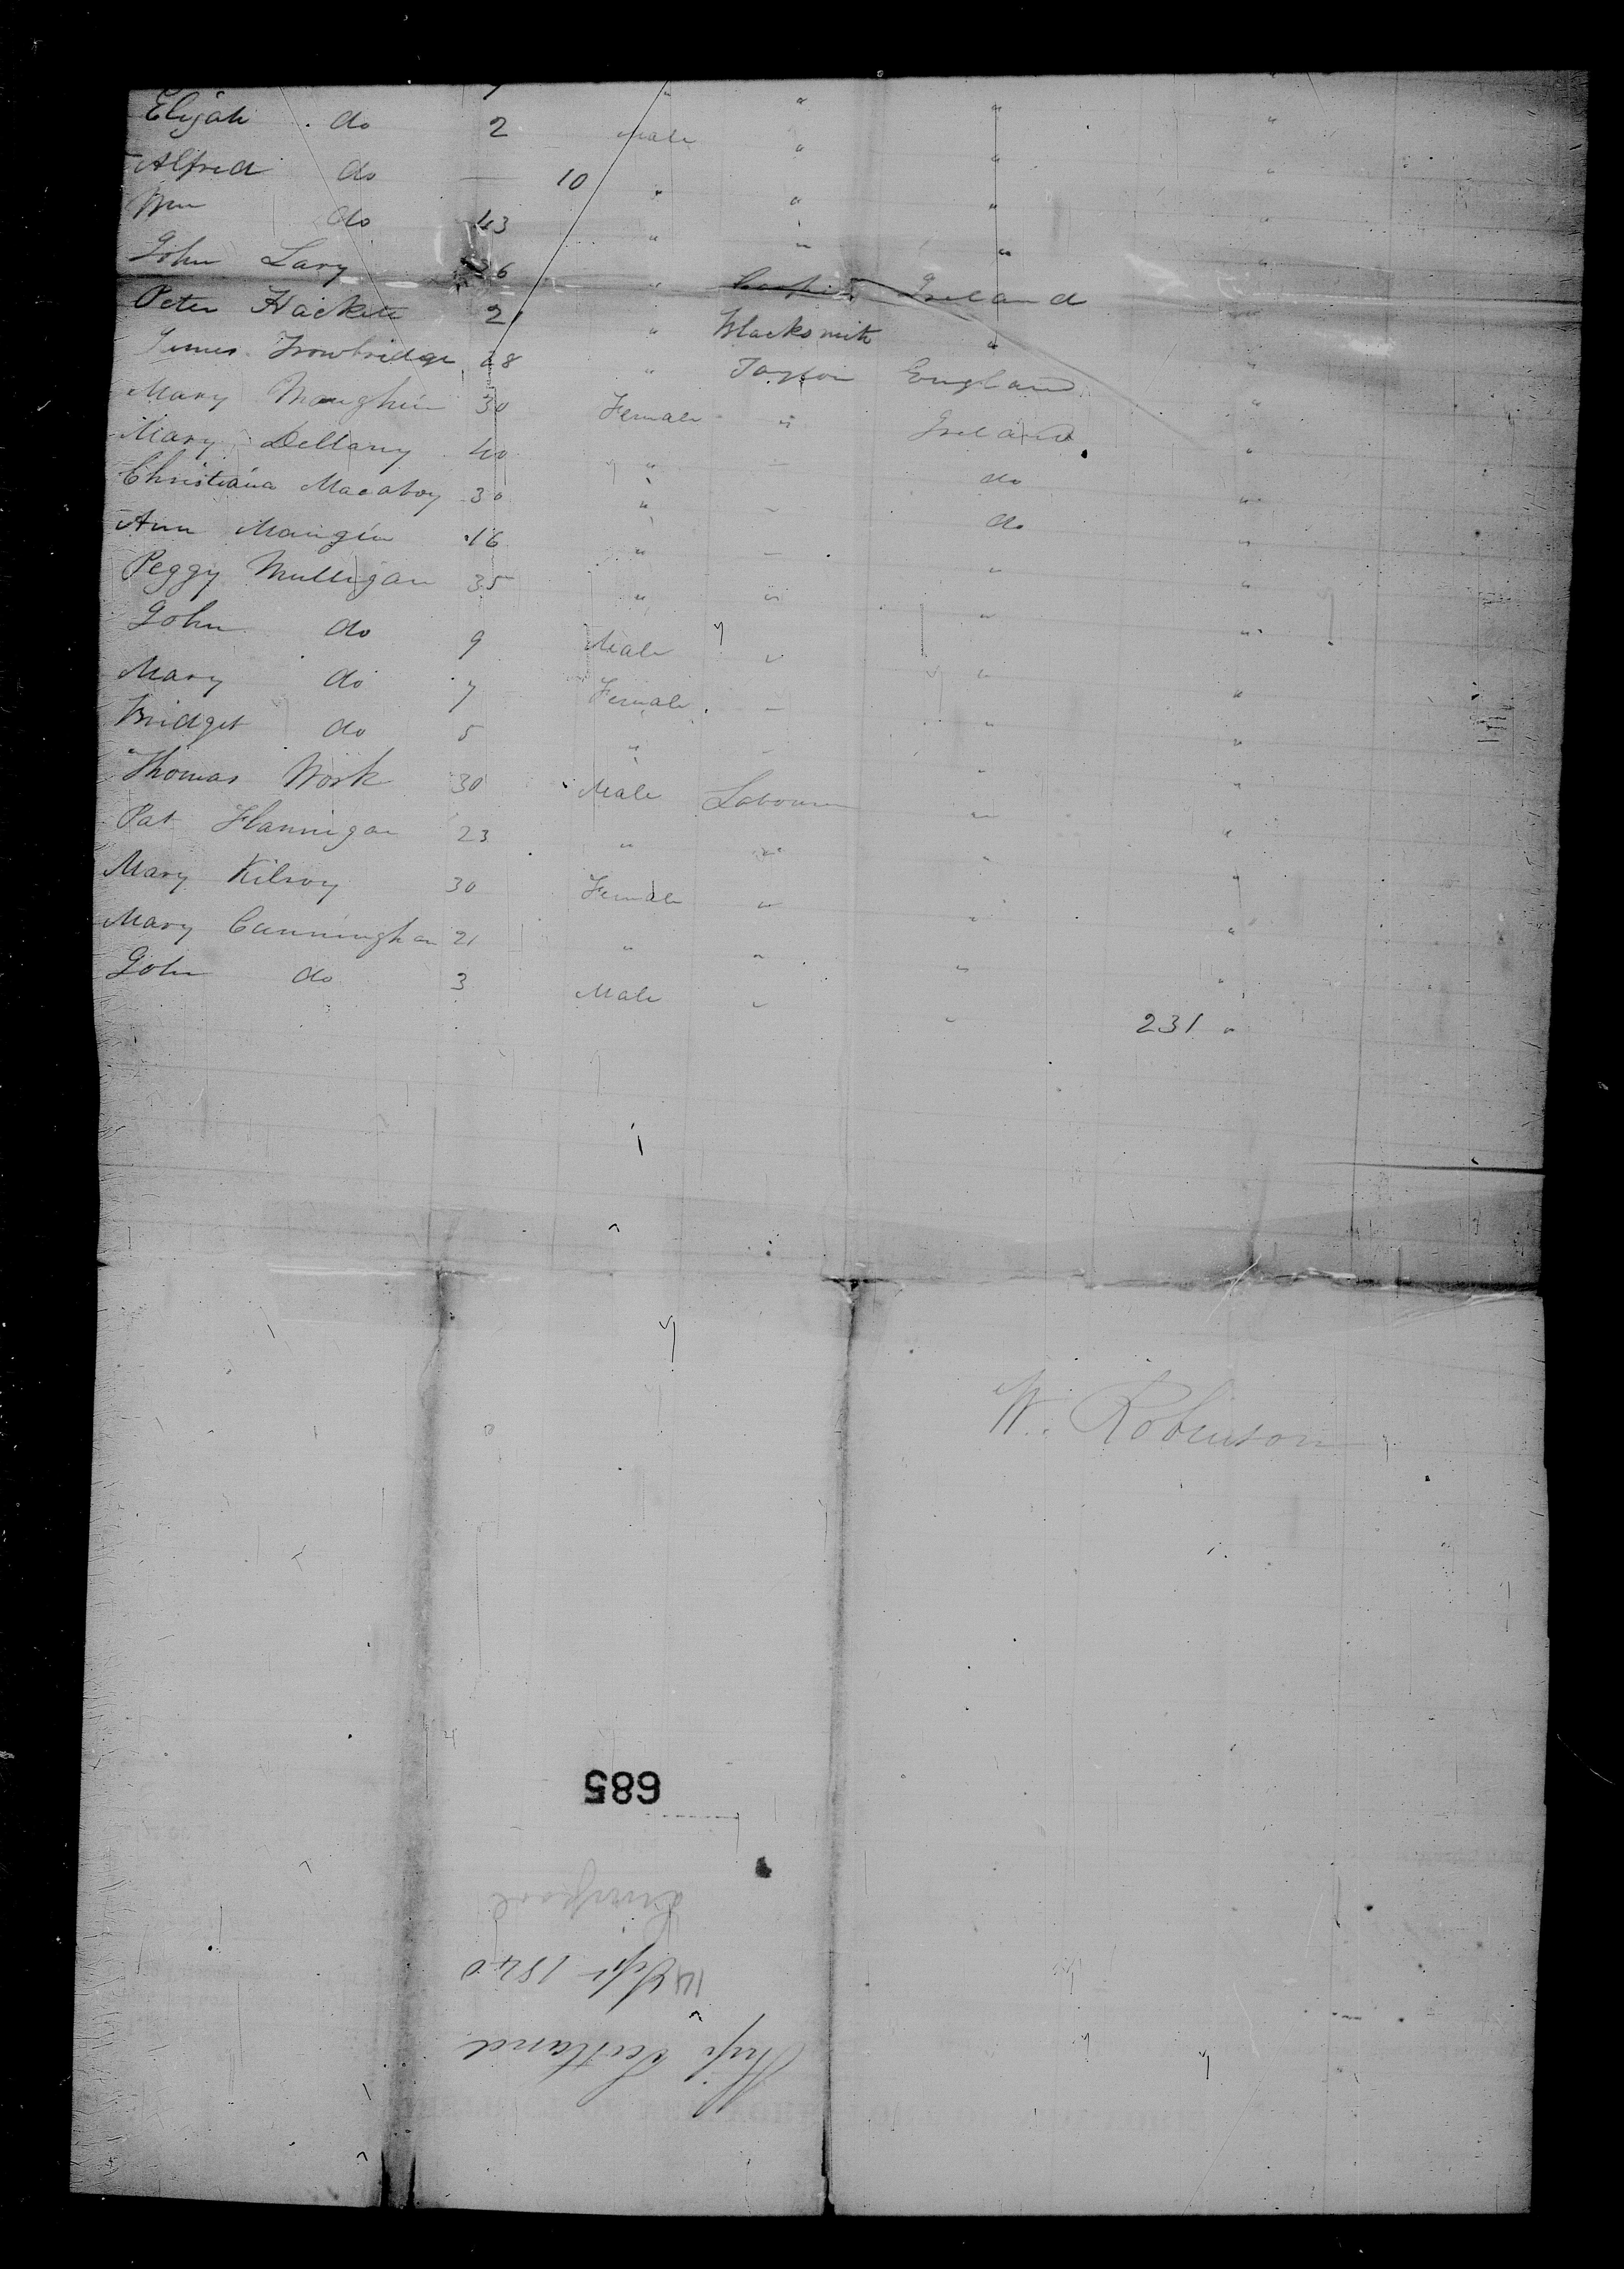 Elijah do 2 Male " " "
Alfred do — 10 " " " "
Wm do 43 " " " "
John Lavy 36 " Ireland "
Peter Hackett 21 " Blacksmith " "
James Trowbridge 28 " England "
Mary Maughin 30 Female " Ireland "
Mary Dellany 40 " — do "
Christiana Macaboy 30 " — do "
Ann Mangin 16 " — " "
Peggy Mulligan 35 " " " "
John do 9 Male " " "
Mary do 7 Female — " "
Bridget do 5 " — " "
Thomas Work 30 Male Labourer " "
Pat Flannigan 23 " " " "
Mary Kilroy 30 Female " " "
Mary Cunningham 21 " " " "
John do 3 Male " " "
231
W. Robinson
685
Ship Scotland
14 Sept 1840
Liverpool